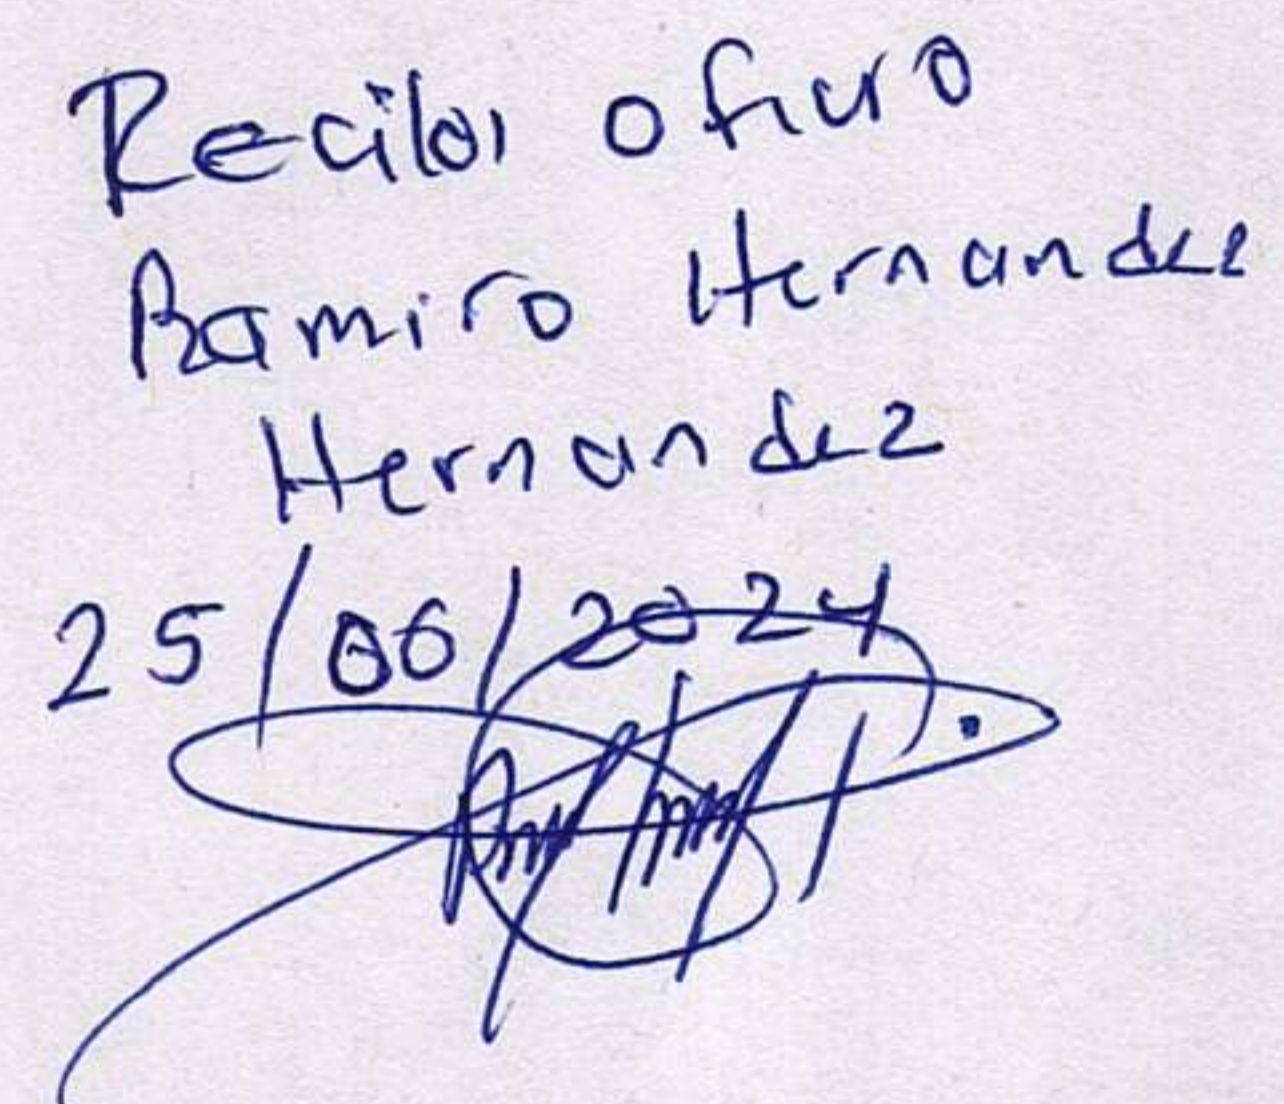 Recibi oficio
Ramiro Hernandez
Hernandez
25/06/2024